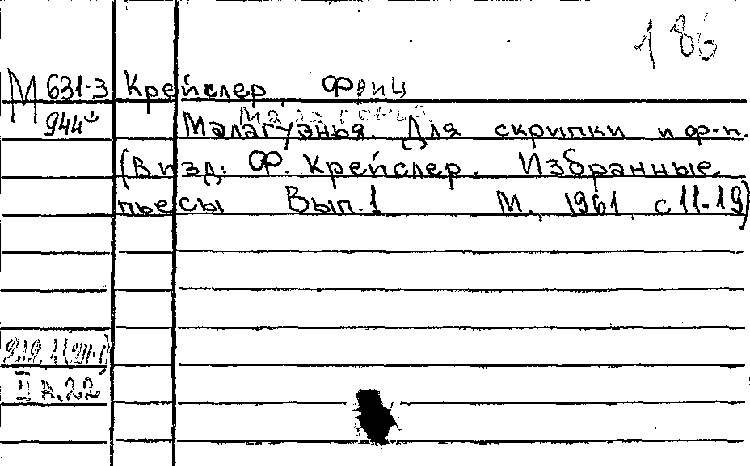 186
М 631-3 Крейслер Фриц
944й Малагуэнья. Для скрипки и ф-п.
(В изд: Ф. Крейслер. Избранные
пьесы Вып.1 М., 1961 с 11-19)
II А.22